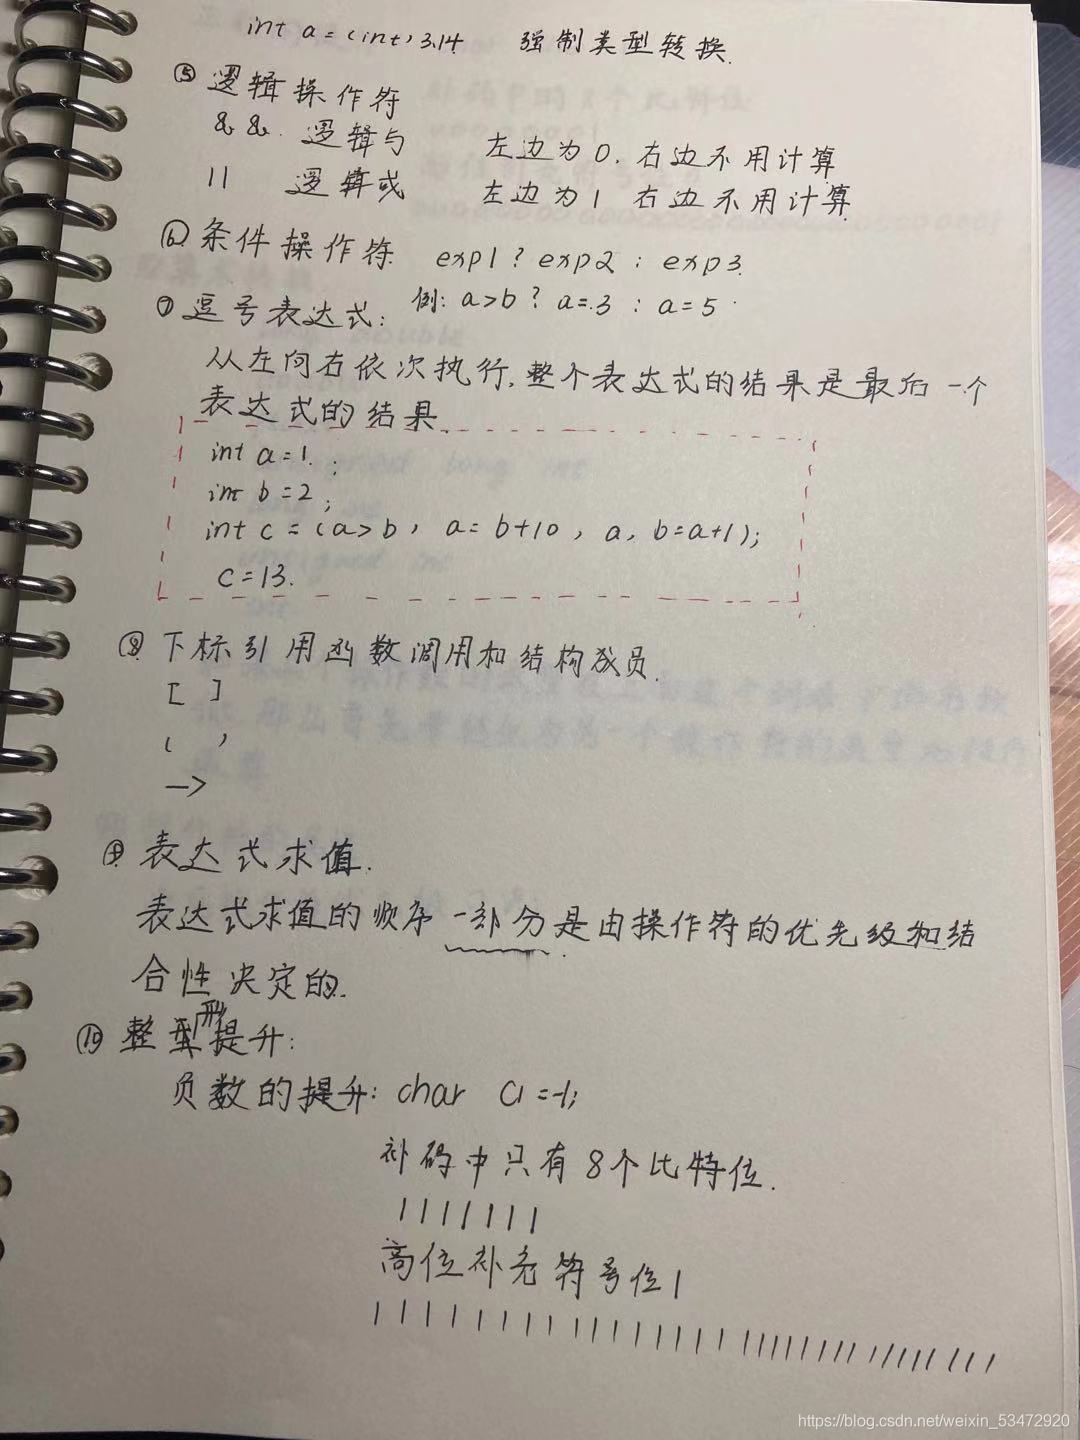 int a = (int) 3.14 强制类型转换.
⑤ 逻辑操作符
&& 逻辑与 左边为0. 右边不用计算
|| 逻辑或 左边为1 右边不用计算
⑥ 条件操作符 exp1 ? exp2 : exp3.
⑦ 逗号表达式: 例: a>b ? a=3 : a=5
从左向右依次执行, 整个表达式的结果是最后一个
表达式的结果.
int a=1;
int b=2;
int c = (a>b, a=b+10, a, b=a+1);
c=13.
⑧ 下标引用函数调用和结构成员.
[ ]
( )
->
⑨ 表达式求值.
表达式求值的顺序一部分是由操作符的优先级和结
合性决定的.
⑩ 整形提升:
负数的提升: char c1=-1;
补码中只有8个比特位.
1111111
高位补充符号位1
https://blog.csdn.net/weixin_53472920